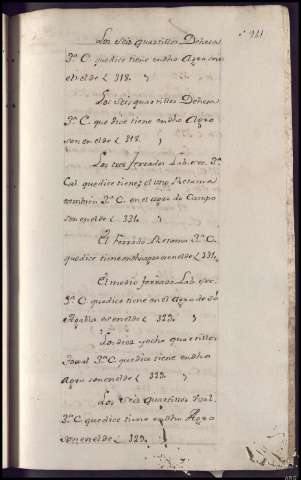 921
Los seis quartillos Dehesa
3ª C. que dice tiene en dho Agro son
en el de L 318.
Los seis quartillos Dehesa
3ª C. que dice tiene en dho Agro
son en el de L 318.
Los tres ferrados Lab. sec. 3ª
Cal. que dice tiene, el uno Retama
tambien 3ª C. en el agro de Campo
son en el de L 331.
El Ferrado Retama 3ª C.
que dice tiene en dho agro es en el de L 331.
El medio ferrado Lab. sec.
3ª C. que dice tiene en el Agro de
es en el de L 329.
Los diez y ocho quartillos
3ª C. que dice tiene en dho
Agro son en el de L 329.
Los seis quartillos
3ª C. que dice tiene en dho Agro
son en el de L 329.